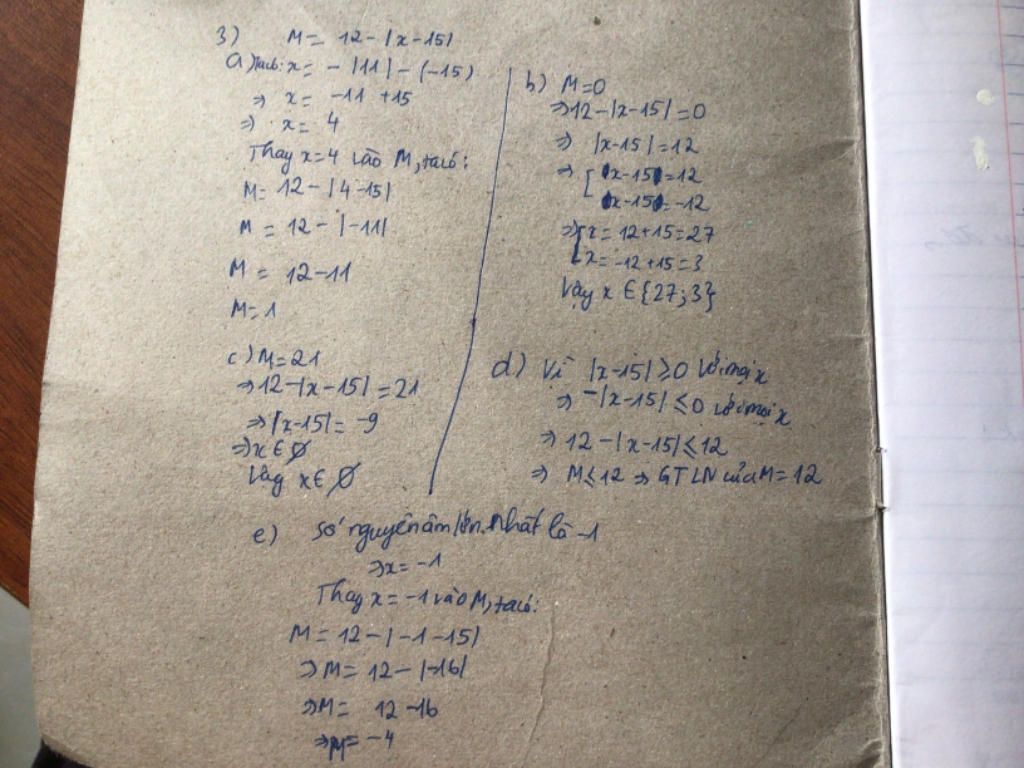 3) M = 12 - |x - 15|
a) Ta có: x = - |11| - (-15)
⇒ x = -11 + 15
⇒ x = 4
Thay x = 4 vào M, ta có:
M = 12 - |4 - 15|
M = 12 - |-11|
M = 12 - 11
M = 1
b) M = 0
⇒ 12 - |x - 15| = 0
⇒ |x - 15| = 12
⇒ [ x - 15 = 12
x - 15 = -12
⇒ [ x = 12 + 15 = 27
x = -12 + 15 = 3
Vậy x ∈ {27; 3}
c) M = 21
⇒ 12 - |x - 15| = 21
⇒ |x - 15| = -9
⇒ x ∈ ∅
Vậy x ∈ ∅
d) Vì |x - 15| ≥ 0 với mọi x
⇒ -|x - 15| ≤ 0 với mọi x
⇒ 12 - |x - 15| ≤ 12
⇒ M ≤ 12 ⇒ GTLN của M = 12
e) Số nguyên âm lớn nhất là -1
⇒ x = -1
Thay x = -1 vào M, ta có:
M = 12 - |-1 - 15|
⇒ M = 12 - |-16|
⇒ M = 12 - 16
⇒ M = -4